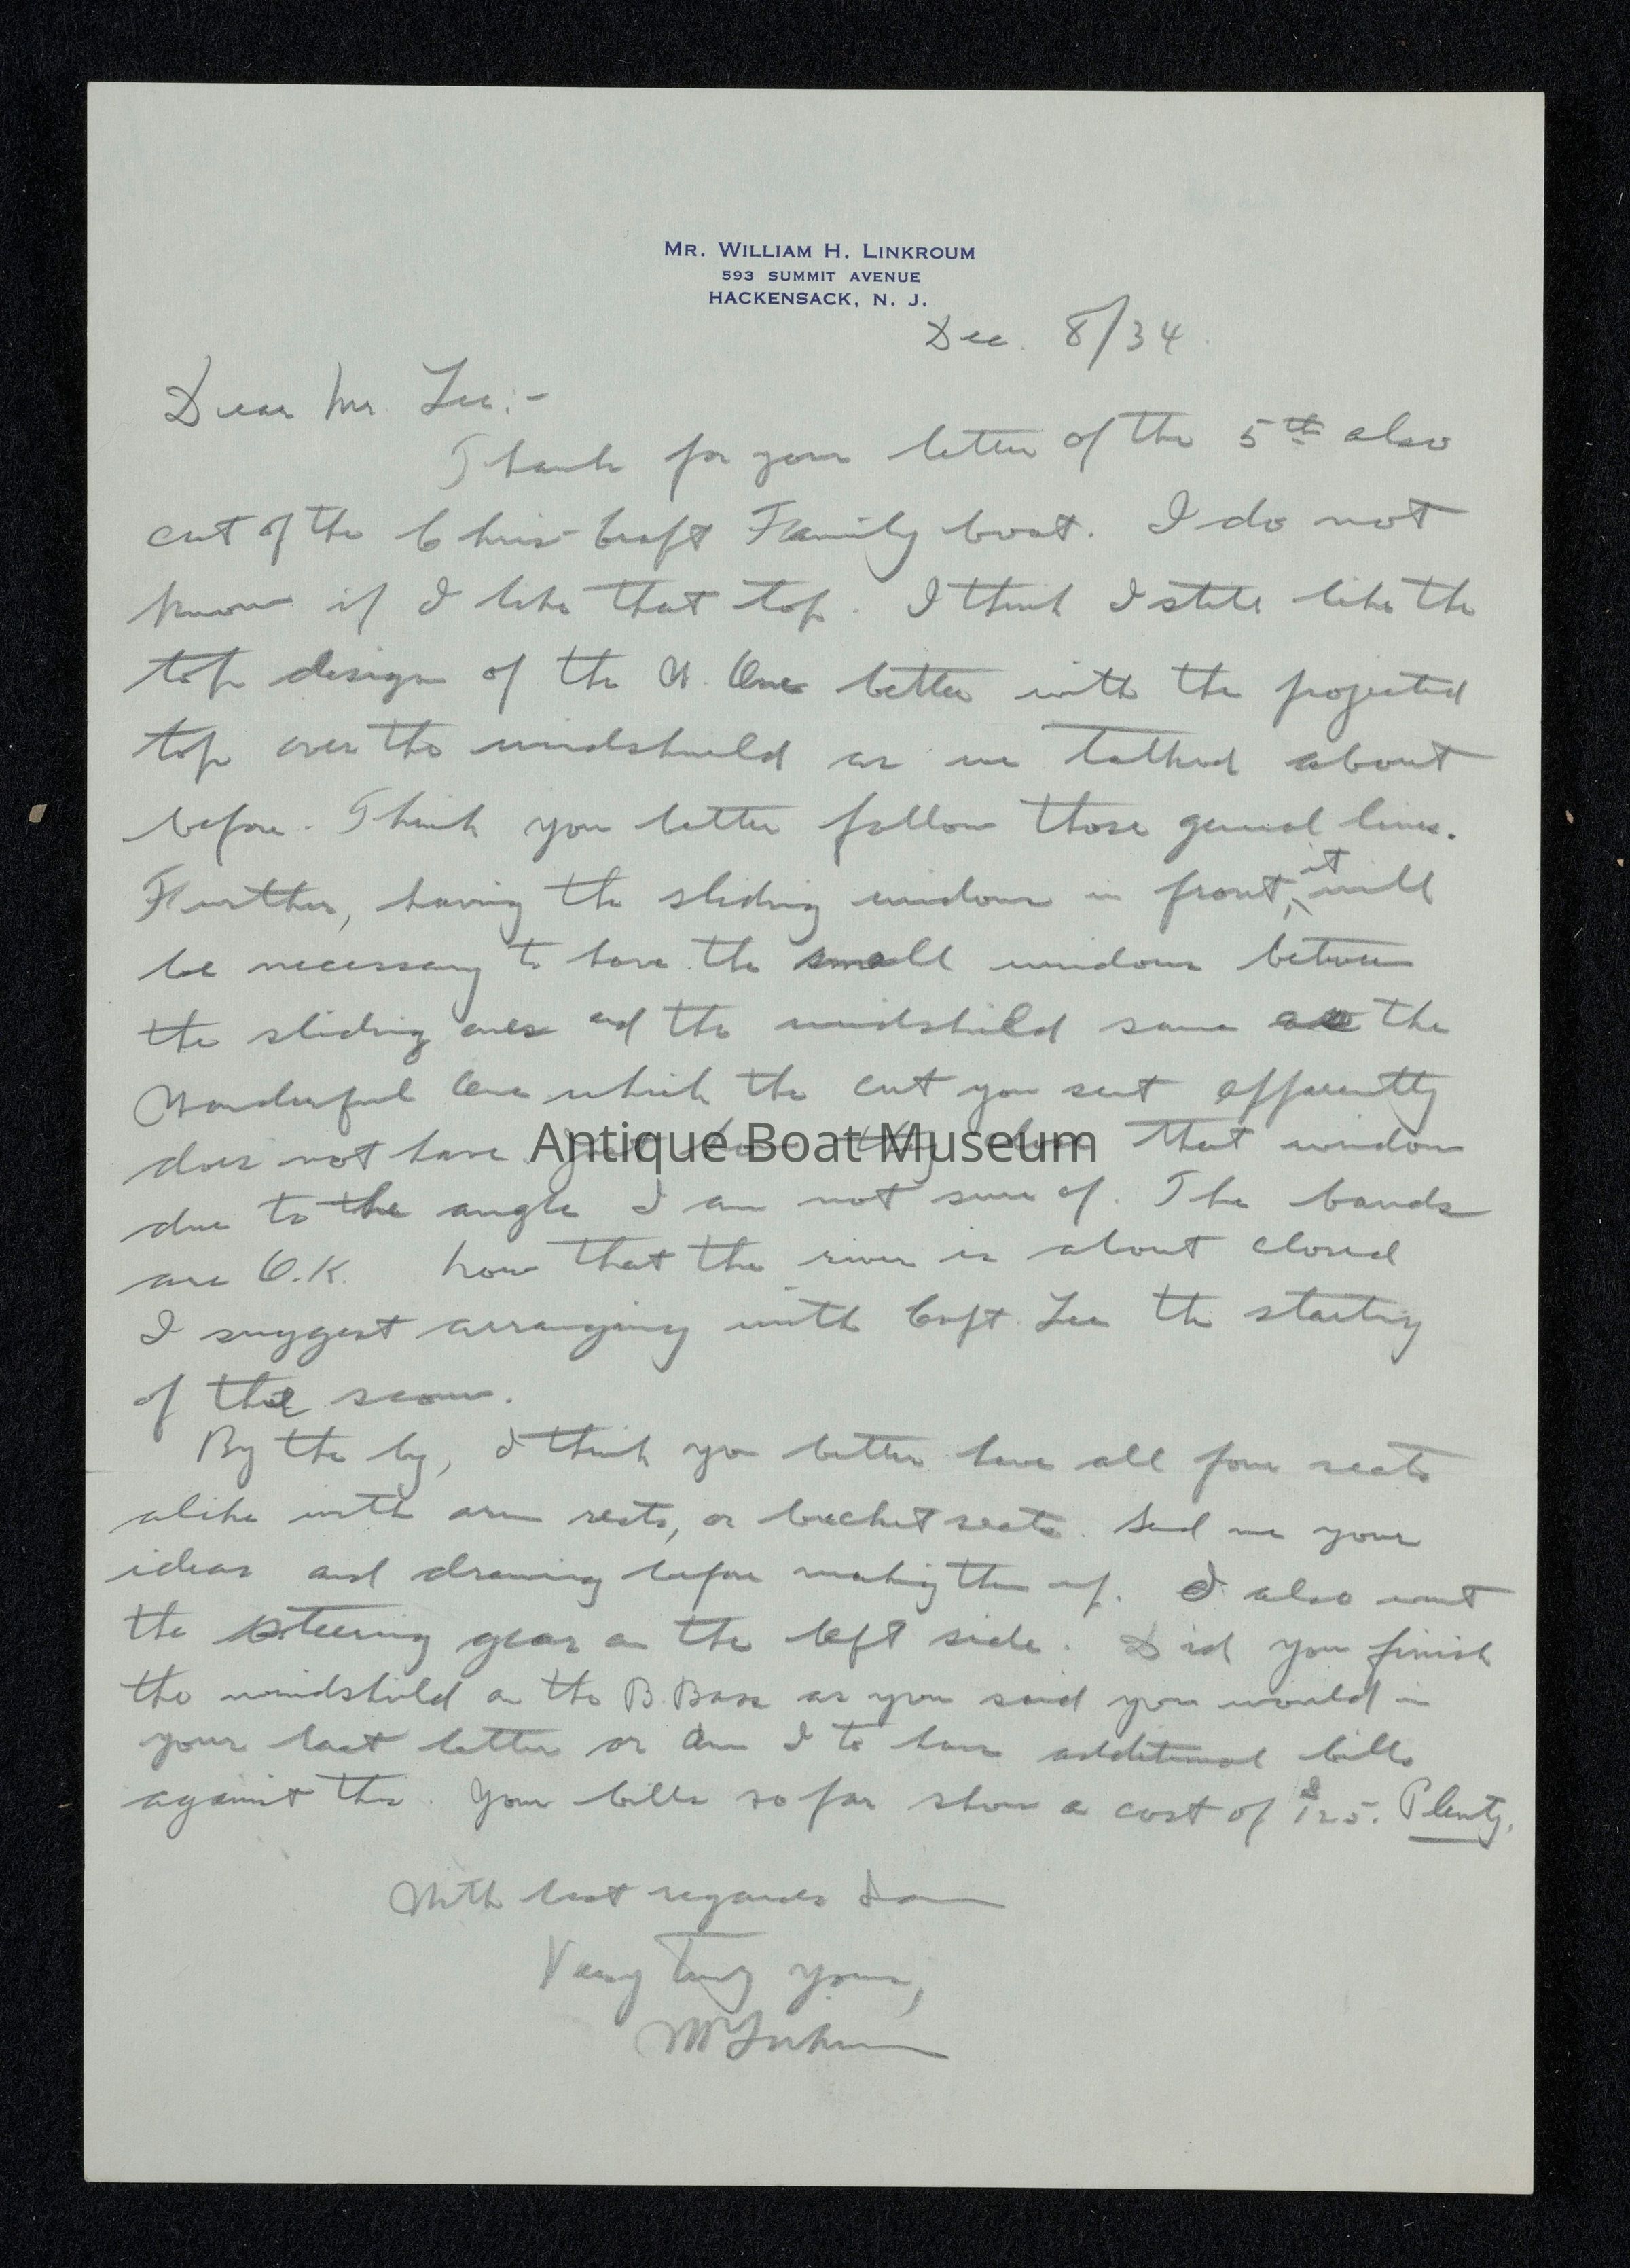 MR. WILLIAM H. LINKROUM
593 SUMMIT AVENUE
HACKENSACK, N. J.
Dec. 8/34.
Dear Mr. Lee:-
Thank for your letter of the 5th also
cut of the Chris-Craft Family boat. I do not
know if I like that top. I think I still like the
top design of the W. One better with the projected
top over the windshield as we talked about
before. Think you better follow those general lines.
Further, having the sliding windows in front, it will
be necessary to have the small windows between
the sliding ones and the windshild same as the
Wonderful One which the cut you sent apparently
does not have. Just how they that window
Antique Boat Museum
due to the angle I am not sure of. The bands
are O.K. Now that the river is about closed
I suggest arranging with Capt. Lee the starting
of the scow.
By the by, I think you better have all four seats
alike with arm rests, or bucket seats. Send me your
ideas and drawing before making them up. I also want
the steering gear on the left side. Did you finish
the windshild on the B. Bass as you said you would in
your last letter or am I to have additional bills
against this. Your bills so far show a cost of $125. Plenty.
With best regards I am
Very truly yours,
W Linkroum